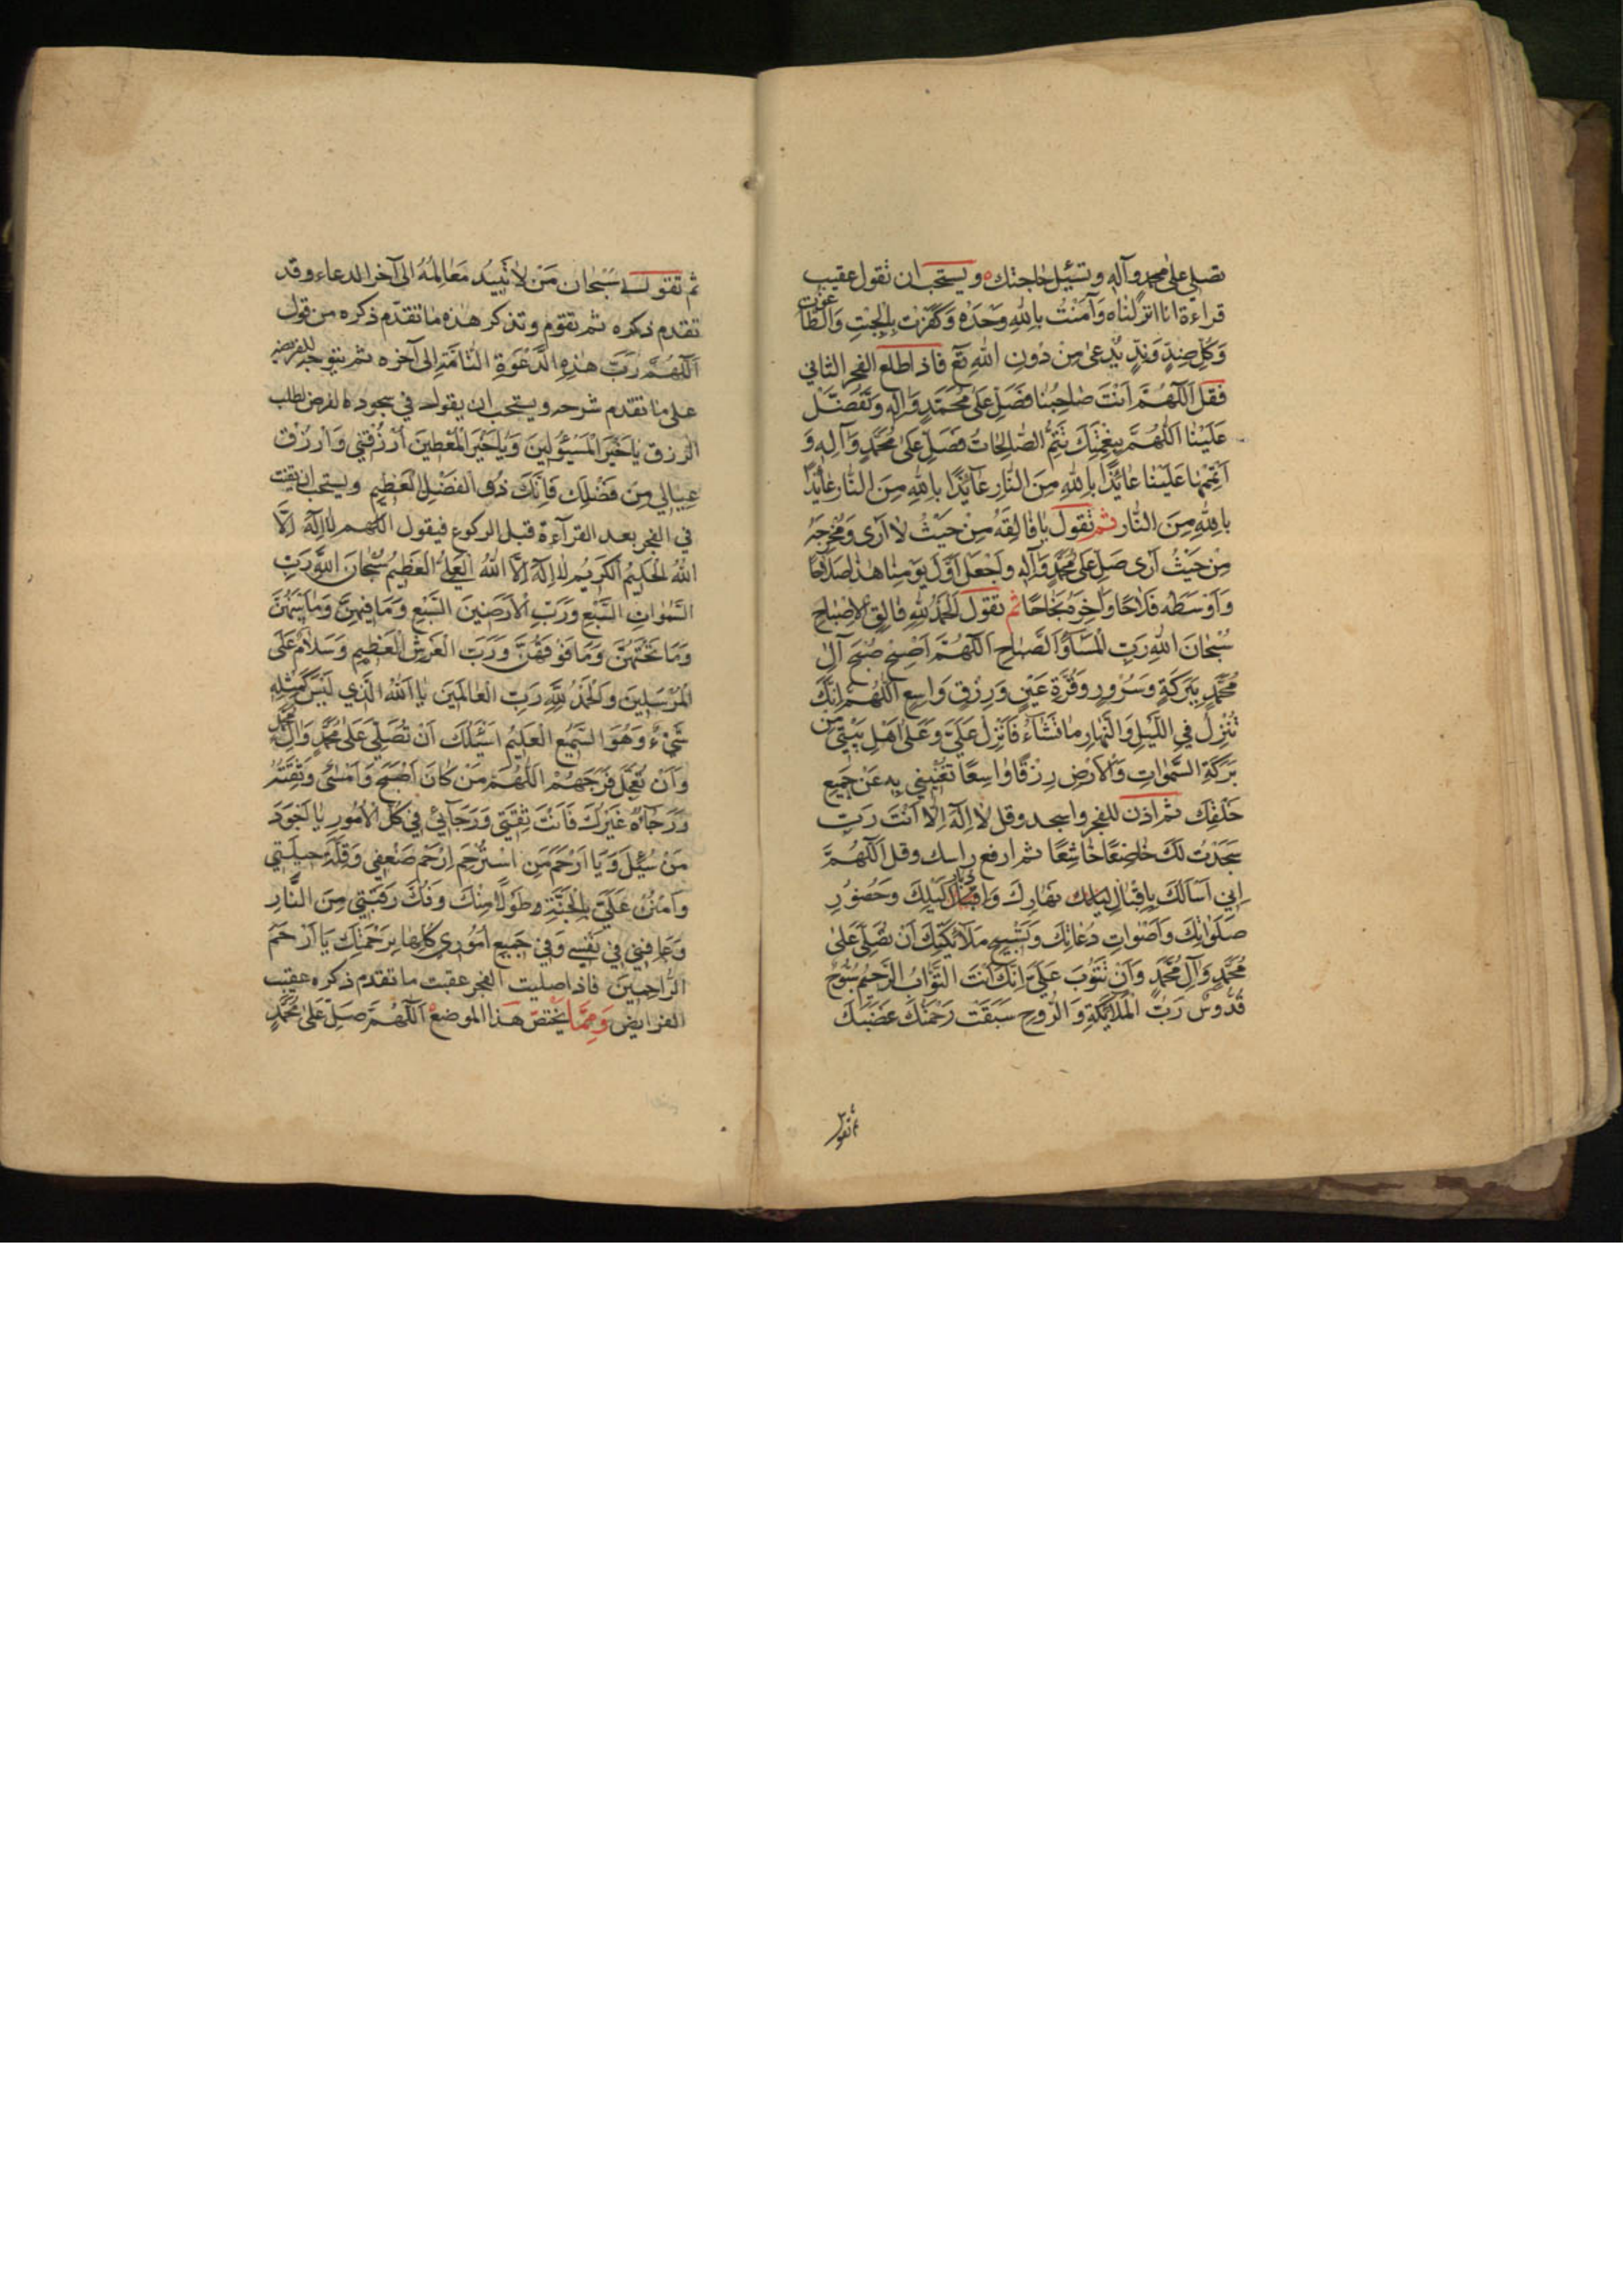 تصلي على محمد وآله وتسئل حاجتك ه ويستحب ان تقول عقيب
قراءة انا انزلناه وَآمَنْتُ بِاللهِ وَحْدَهُ وَكَفَرْتُ بِالْجِبْتِ وَالطَّاغُوتِ
وَكُلِّ ضِدٍّ وَنِدٍّ يُدْعىٰ مِنْ دُونِ اللهِ تع فاذا طلع الفجر الثاني
فقل اَللّهُمَّ اَنْتَ صَاحِبُنَا فَصَلِّ عَلىٰ مُحَمَّدٍ وَاٰلِهِ وَتَفَضَّلْ
عَلَيْنَا اَللّهُمَّ بِنِعْمَتِكَ تَتِمُّ الصّالِحَاتُ فَصَلِّ عَلىٰ مُحَمَّدٍ وَآلِهِ وَ
اَتْمِمْهَا عَلَيْنَا عَائِذًا بِاللهِ مِنَ النَّارِ عَائِذًا بِاللهِ مِنَ النَّارِ عَائِذًا
بِاللهِ مِنَ النَّار ثم تقول يَا فَالِقَهُ مِنْ حَيْثُ لا اَرىٰ وَمُخْرِجَهُ
مِنْ حَيْثُ اَرىٰ صَلِّ عَلىٰ مُحَمَّدٍ وَآلِهِ وَاجْعَلْ اَوَّلَ يَوْمِنَا هٰذَا صَلَاحًا
وَاَوْسَطَهُ فَلَاحًا وَاٰخِرَهُ نَجَاحًا ثم تقول اَلْحَمْدُ لِلّهِ فَالِقِ الْاِصْبَاحِ
سُبْحَانَ اللهِ رَبِّ الْمَسَاءِ وَالصَّبَاحِ اَللّهُمَّ اَصْبِحْ صُبْحَ آلِ
مُحَمَّدٍ بِبَرَكَةٍ وَسُرُورٍ وَقُرَّةِ عَيْنٍ وَرِزْقٍ وَاسِعٍ اَللّهُمَّ اِنَّكَ
تُنْزِلُ فِي اللَّيْلِ وَالنَّهَارِ مَا تَشَاءُ فَاَنْزِلْ عَلَيَّ وَعَلىٰ اَهْلِ بَيْتِي مِنْ
بَرَكَةِ السَّمٰوَاتِ وَالْاَرْضِ رِزْقًا وَاسِعًا تُغْنِينِي بِهِ عَنْ جَمِيعِ
خَلْقِكَ ثم اذن للفجر واسجد وقل لَا اِلٰهَ اِلَّا اَنْتَ رَبِّ
سَجَدْتُ لَكَ خَاضِعًا خَاشِعًا ثم ارفع راسك وقل اَللّهُمَّ
اِنِّي اَسْاَلُكَ بِاِقْبَالِ نَهَارِكَ وَاِدْبَارِ لَيْلِكَ وَحُضُورِ
صَلَوَاتِكَ وَاَصْوَاتِ دُعَاتِكَ وَتَسْبِيحِ مَلَائِكَتِكَ اَنْ تُصَلِّيَ عَلىٰ
مُحَمَّدٍ وَآلِ مُحَمَّدٍ وَاَنْ تَتُوبَ عَلَيَّ اِنَّكَ اَنْتَ التَّوَّابُ الرَّحِيمُ سُبُّوحٌ
قُدُّوسٌ رَبُّ الْمَلَائِكَةِ وَالرُّوحِ سَبَقَتْ رَحْمَتُكَ غَضَبَكَ
ثم تقول
ثم تقول سُبْحَانَ مَنْ لَا تَبِيدُ مَعَالِمُهُ الى آخر الدعاء وقد
تقدم ذكره ثم تقوم وتذكر هذه ما تقدم ذكره من قول
اَللّهُمَّ رَبَّ هٰذِهِ الدَّعْوَةِ التَّامَّةِ الى آخره ثم يتوجه للفريضة
على ما تقدم شرحه ويستحب ان يقول في سجوده الفرض لطلب
الرزق يَا خَيْرَ الْمَسْئُولِينَ وَيَا خَيْرَ الْمُعْطِينَ اُرْزُقْنِي وَارْزُقْ
عِيَالِي مِنْ فَضْلِكَ فَاِنَّكَ ذُو الْفَضْلِ الْعَظِيمِ ويستحب ان يقنت
في الفجر بعد القرآءة قبل الركوع فيقول اللهم لَا اِلٰهَ اِلَّا
اللهُ الْحَلِيمُ الْكَرِيمُ لَا اِلٰهَ اِلَّا اللهُ الْعَلِيُّ الْعَظِيمُ سُبْحَانَ اللهِ رَبِّ
السَّمٰوَاتِ السَّبْعِ وَرَبِّ الْاَرَضِينَ السَّبْعِ وَمَا فِيهِنَّ وَمَا بَيْنَهُنَّ
وَمَا تَحْتَهُنَّ وَمَا فَوْقَهُنَّ وَرَبِّ الْعَرْشِ الْعَظِيمِ وَسَلَامٌ عَلَى
الْمُرْسَلِينَ وَالْحَمْدُ لِلّهِ رَبِّ الْعَالَمِينَ يَا اَللهُ الَّذِي لَيْسَ كَمِثْلِهِ
شَيْءٌ وَهُوَ السَّمِيعُ الْعَلِيمُ اَسْئَلُكَ اَنْ تُصَلِّيَ عَلىٰ مُحَمَّدٍ وَآلِ مُحَمَّدٍ
وَاَنْ تُعَجِّلَ فَرَجَهُمْ اَللّهُمَّ مَنْ كَانَ اَصْبَحَ وَاَمْسىٰ وَثِقَتُهُ
وَرَجَاؤُهُ غَيْرُكَ فَاَنْتَ ثِقَتِي وَرَجَائِي فِي كُلِّ الْاُمُورِ يَا اَجْوَدَ
مَنْ سُئِلَ وَيَا اَرْحَمَ مَنِ اسْتُرْحِمَ اِرْحَمْ ضَعْفِي وَقِلَّةَ حِيلَتِي
وَامْنُنْ عَلَيَّ بِالْجَنَّةِ طَوْلًا مِنْكَ وَفُكَّ رَقَبَتِي مِنَ النَّارِ
وَعَافِنِي فِي نَفْسِي وَفِي جَمِيعِ اُمُورِي كُلِّهَا بِرَحْمَتِكَ يَا اَرْحَمَ
الرَّاحِمِينَ فاذا صليت الفجر عقبت ما تقدم ذكره عقيب
الفرايض وَمِمَّا يختص هذا الموضع اَللّهُمَّ صَلِّ عَلىٰ مُحَمَّدٍ